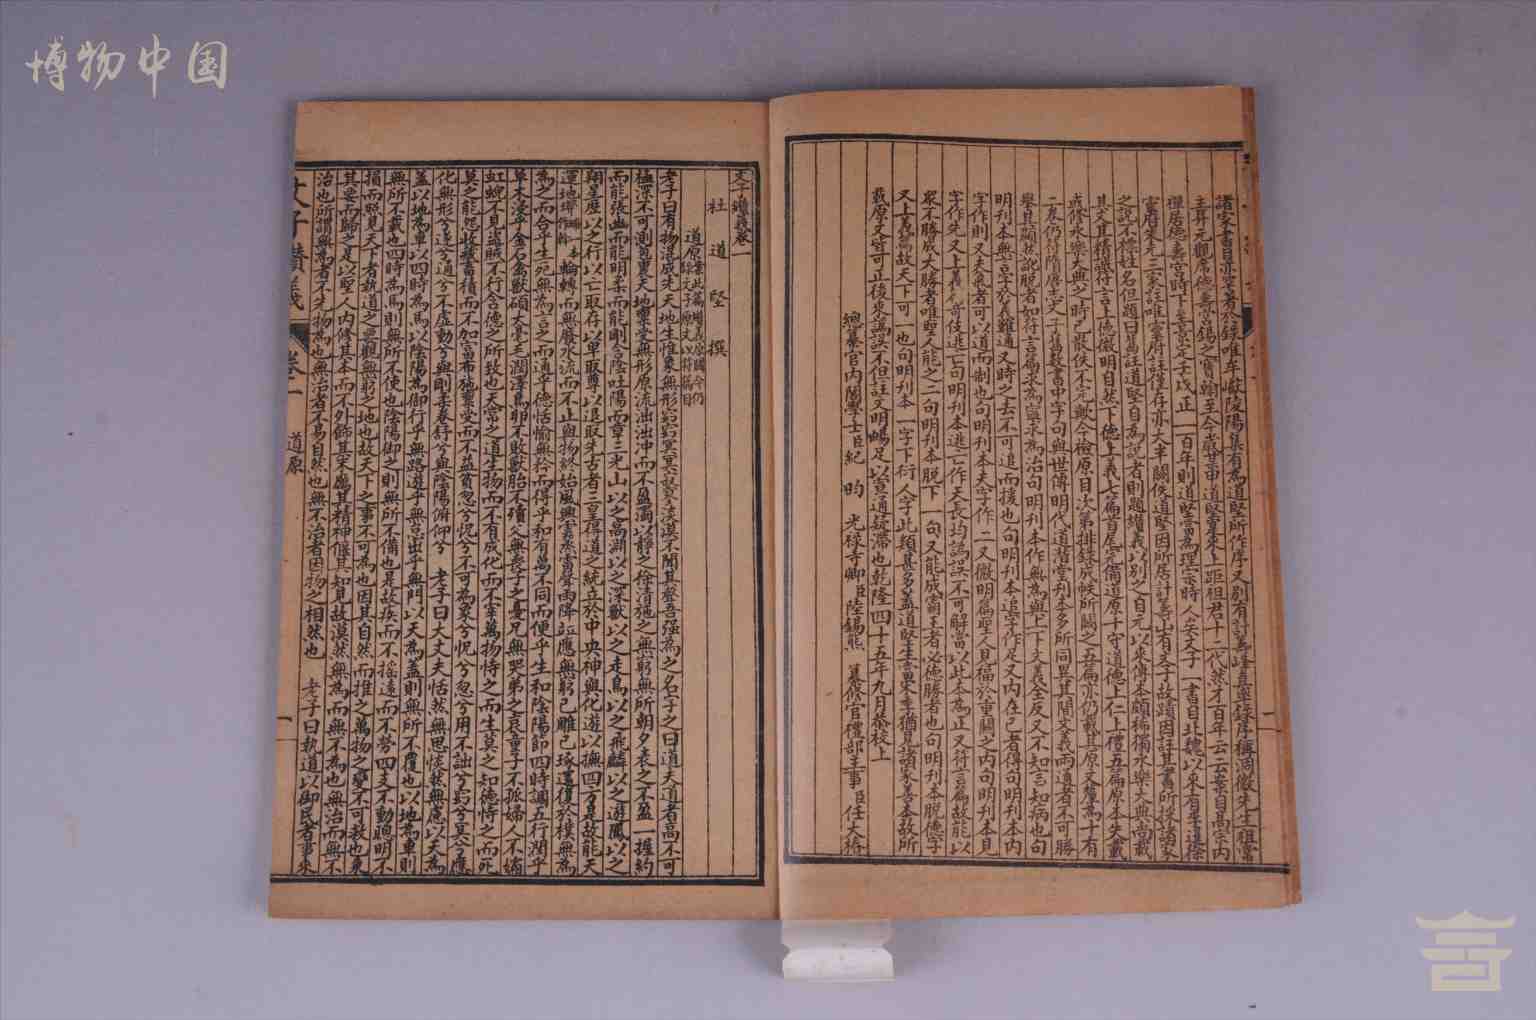 諸家書目亦罕著於錄唯牟巘陵陽集有為道堅所作序又別有計籌峰真率錄序稱洞微先生祖常
主昇元觀席德壽宮錫之寶翰至今歲甲申道堅實來上距祖君十一代然才百年云云案自高宗內
禪居德壽宮時下至景定壬戌正一百年則道堅當為理宗時人矣文子一書自北魏以來有李暹徐
靈府朱元三家註唯靈府註僅存亦大半闕佚道堅因所居計籌山有文子故蹟因註其書所採諸家
之說不標姓名但題曰舊註道堅自為說者則題纘義以別之自元以來傳本頗稀獨永樂大典尚載
其文其精誠符言上德微明自然下德上義七篇首尾完備道原十守道德上仁上禮五篇原本失載
或修永樂大典之時已散佚不完歟今檢原目次第排錄成帙所闕之五篇亦仍載其原文釐為十有
二卷仍符隋唐志文子舊數書中字句與世傳明代道潛堂刊本多所同異其間文義兩通者不可勝
舉其顯然訛脫者如符言篇求為寧求為治句明刊本作無為與上下文義全反又不知言知病也句
明刊本無言字於義難通又時之去不可追而援也句明刊本追字作足又內在己者得句明刊本內
字作則又夫氣者可以道而制也句明刊本夫字作二又微明篇聖人見福於重關之內句明刊本見
字作先又上義篇奇伎逃亡句明刊本逃亡作天長均訛誤不可解當以此本為正又符言篇故能以
眾不勝成大勝者唯聖人能之二句明刊本脫下一句又能成霸王者必德勝者也句明刊本脫德字
又上義篇故天下可一也句明刊本一字下衍人字此類甚多蓋道堅生當宋季猶見諸家善本故所
載原文皆可正後來訛誤不但註文明暢足以宣通疑滯也乾隆四十五年九月恭校上
總纂官內閣學士臣紀昀 光祿寺卿臣陸錫熊 纂修官禮部主事臣任大椿
文子纘義卷一
杜道堅撰
道原案此篇纘義原闕今仍錄文子原文以符篇目
老子曰有物混成先天地生惟象無形窈窈冥冥寂寥淡漠不聞其聲吾强為之名字之曰道夫道者高不可
極深不可測苞裹天地稟受無形原流泏泏沖而不盈濁以靜之徐清施之無窮無所朝夕表之不盈一握約
而能張幽而能明柔而能剛含陰吐陽而章三光山以之高淵以之深獸以之走鳥以之飛麟以之遊鳳以之
翔星歷以之行以亡取存以卑取尊以退取先古者三皇得道之統立於中央神與化遊以撫四方是故能天
運地墆輪轉而無廢水流而不止與物終始風興雲蒸雷聲雨降竝應無窮已雕已琢還復於樸無為
為之而合乎生死無為言之而通乎德恬愉無矜而得乎和有萬不同而便乎生和陰陽節四時調五行潤乎
草木浸乎金石禽獸碩大毫毛潤澤鳥卵不敗獸胎不殰父無喪子之憂兄無哭弟之哀童子不孤婦人不孀
虹蜺不見盜賊不行含德之所致也大常之道生物而不有成化而不宰萬物恃之而生莫之知德恃之而死
莫之能怨收藏畜積而不加富布施稟受而不益貧忽兮怳兮不可為象兮怳兮忽兮用不詘兮窈兮冥兮應
化無形兮遂兮通兮不虛動兮與剛柔卷舒兮與陰陽俯仰兮 老子曰大丈夫恬然無思惔然無慮以天為
蓋以地為車以四時為馬以陰陽為御行乎無路遊乎無怠出乎無門以天為蓋則無所不覆也以地為車則
無所不載也四時為馬則無所不使也陰陽御之則無所不備也是故疾而不搖遠而不勞四支不動聰明不
損而照見天下者執道之要觀無窮之地也故天下之事不可為也因其自然而推之萬物之變不可救也秉
其要而歸之是以聖人內修其本而不外飾其末厲其精神偃其知見故漠然無為而無不為也無治而無不
治也所謂無為者不先物為也無治者不易自然也無不治者因物之相然也 老子曰執道以御民者事來
文子纘義 卷一 道原 一
二
博物中国